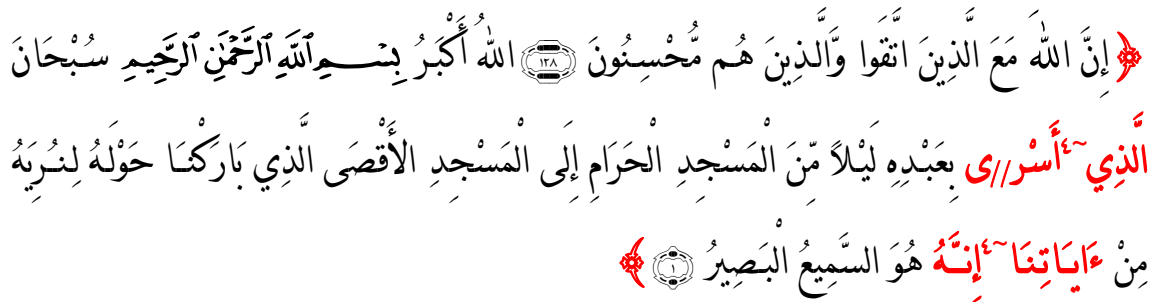 ﴿ إِنَّ اللهَ مَعَ الَّذِينَ اتَّقَوا وَّالَّذِينَ هُم مُّحْسِنُونَ ١٢٨ اللهُ أَكْبَرُ بِسْمِ اللَّهِ الرَّحْمَٰنِ الرَّحِيمِ سُبْحَانَ
الَّذِي ~٤ أَسْر//ى بِعَبْدِهِ لَيْلاً مِّنَ الْمَسْجِدِ الْحَرَامِ إِلَى الْمَسْجِدِ الأَقْصَى الَّذِي بَارَكْنَا حَوْلَهُ لِنُرِيَهُ
مِنْ ءَايَاتِنَا ~٤ إِنَّهُ هُوَ السَّمِيعُ الْبَصِيرُ ١ ﴾